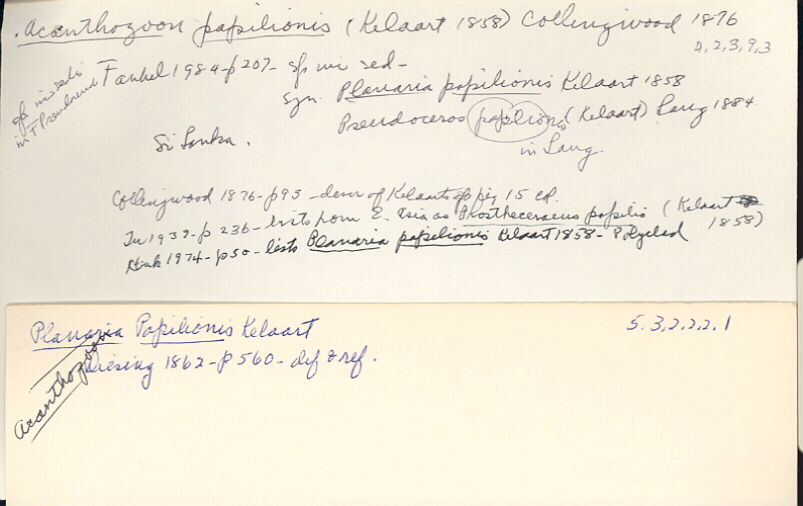 . Acanthozoon papilionis (Kelaart 1858) Collingwood 1876
4,2,3,9,3
sp in sedi
in F Proudnund
Faubel 1984 - p 207 - sp in sed -
syn. Planaria papilionis Kelaart 1858
Pseudoceros papilionis (Kelaart) Lang 1884
in Lang.
Sri Lanka.
Collingwood 1876 - p 95 - descr of Kelaart's sp
1939 - p 236 - lists from E. Asia as Prostheceraeus papilio (Kelaart 1858)
1974 - p 50 - lists Planaria papilionis Kelaart 1858 - Polyclad
Planaria Papilionis Kelaart
5.3.2.2.2.1
Diesing 1862 - p 560 - def & ref.
Acanthozoon